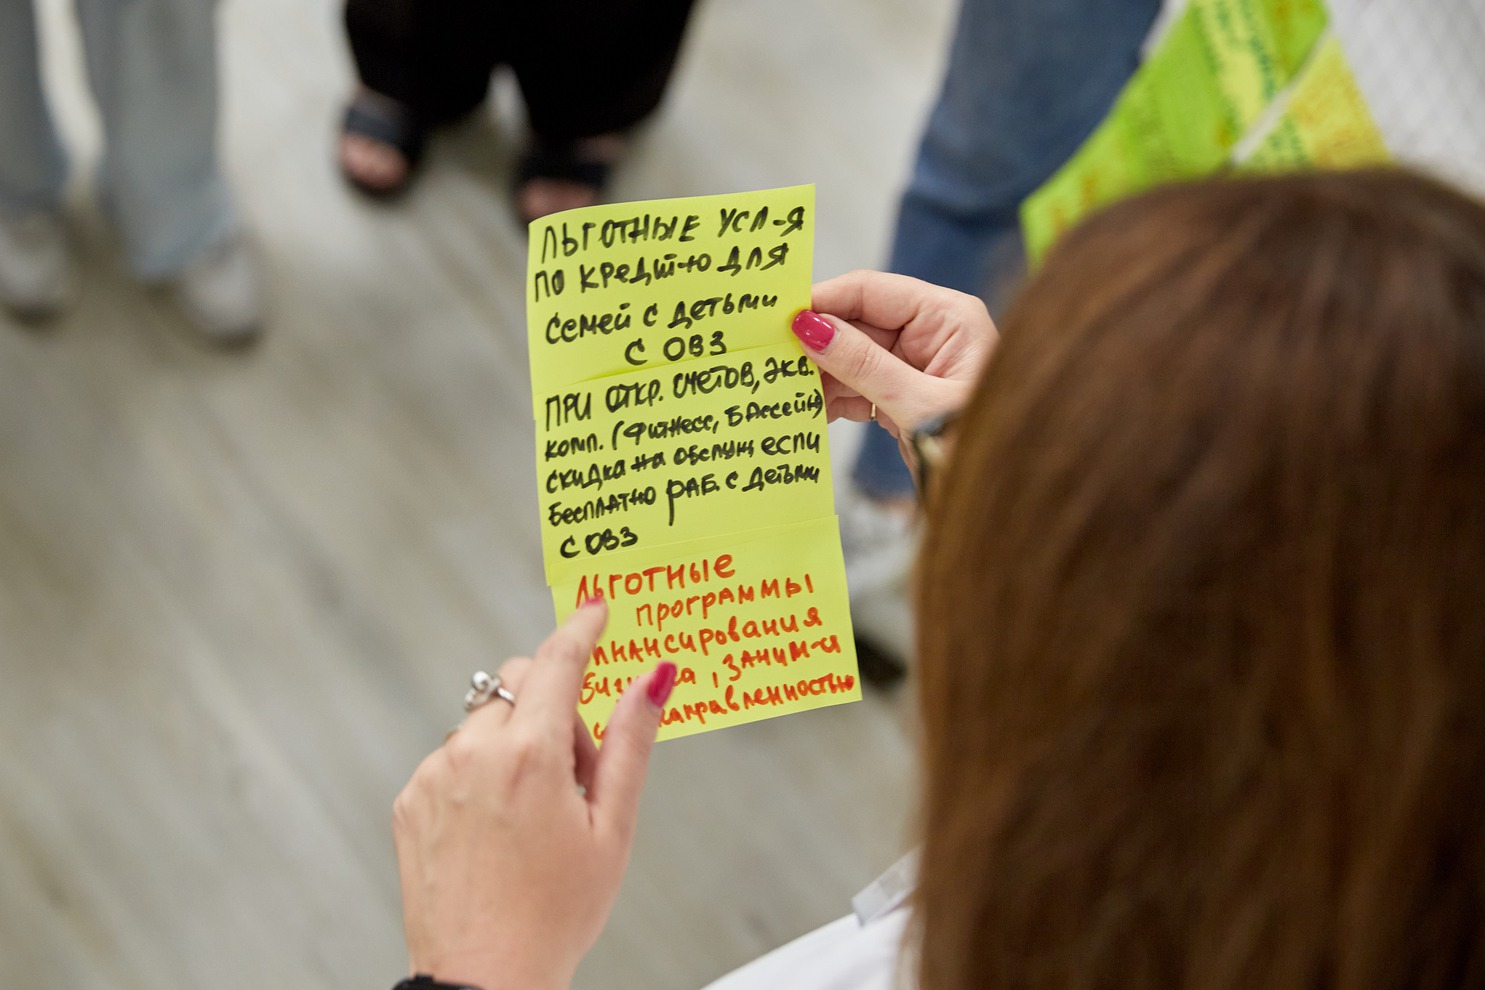 ЛЬГОТНЫЕ УСЛ-Я
ПО КРЕДИТ-Ю ДЛЯ
СЕМЕЙ С ДЕТЬМИ
С ОВЗ
ПРИ ОТКР. СЧЕТОВ, ЭКВ.
КОМП. (ФИТНЕСС, БАССЕЙН)
СКИДКА НА ОБСЛУЖ, ЕСЛИ
БЕСПЛАТНО РАБ. С ДЕТЬМИ
С ОВЗ
ЛЬГОТНЫЕ
ПРОГРАММЫ
ФИНАНСИРОВАНИЯ
БИЗНЕСА, ЗАНИМ-СЯ
НАПРАВЛЕННОСТЬЮ